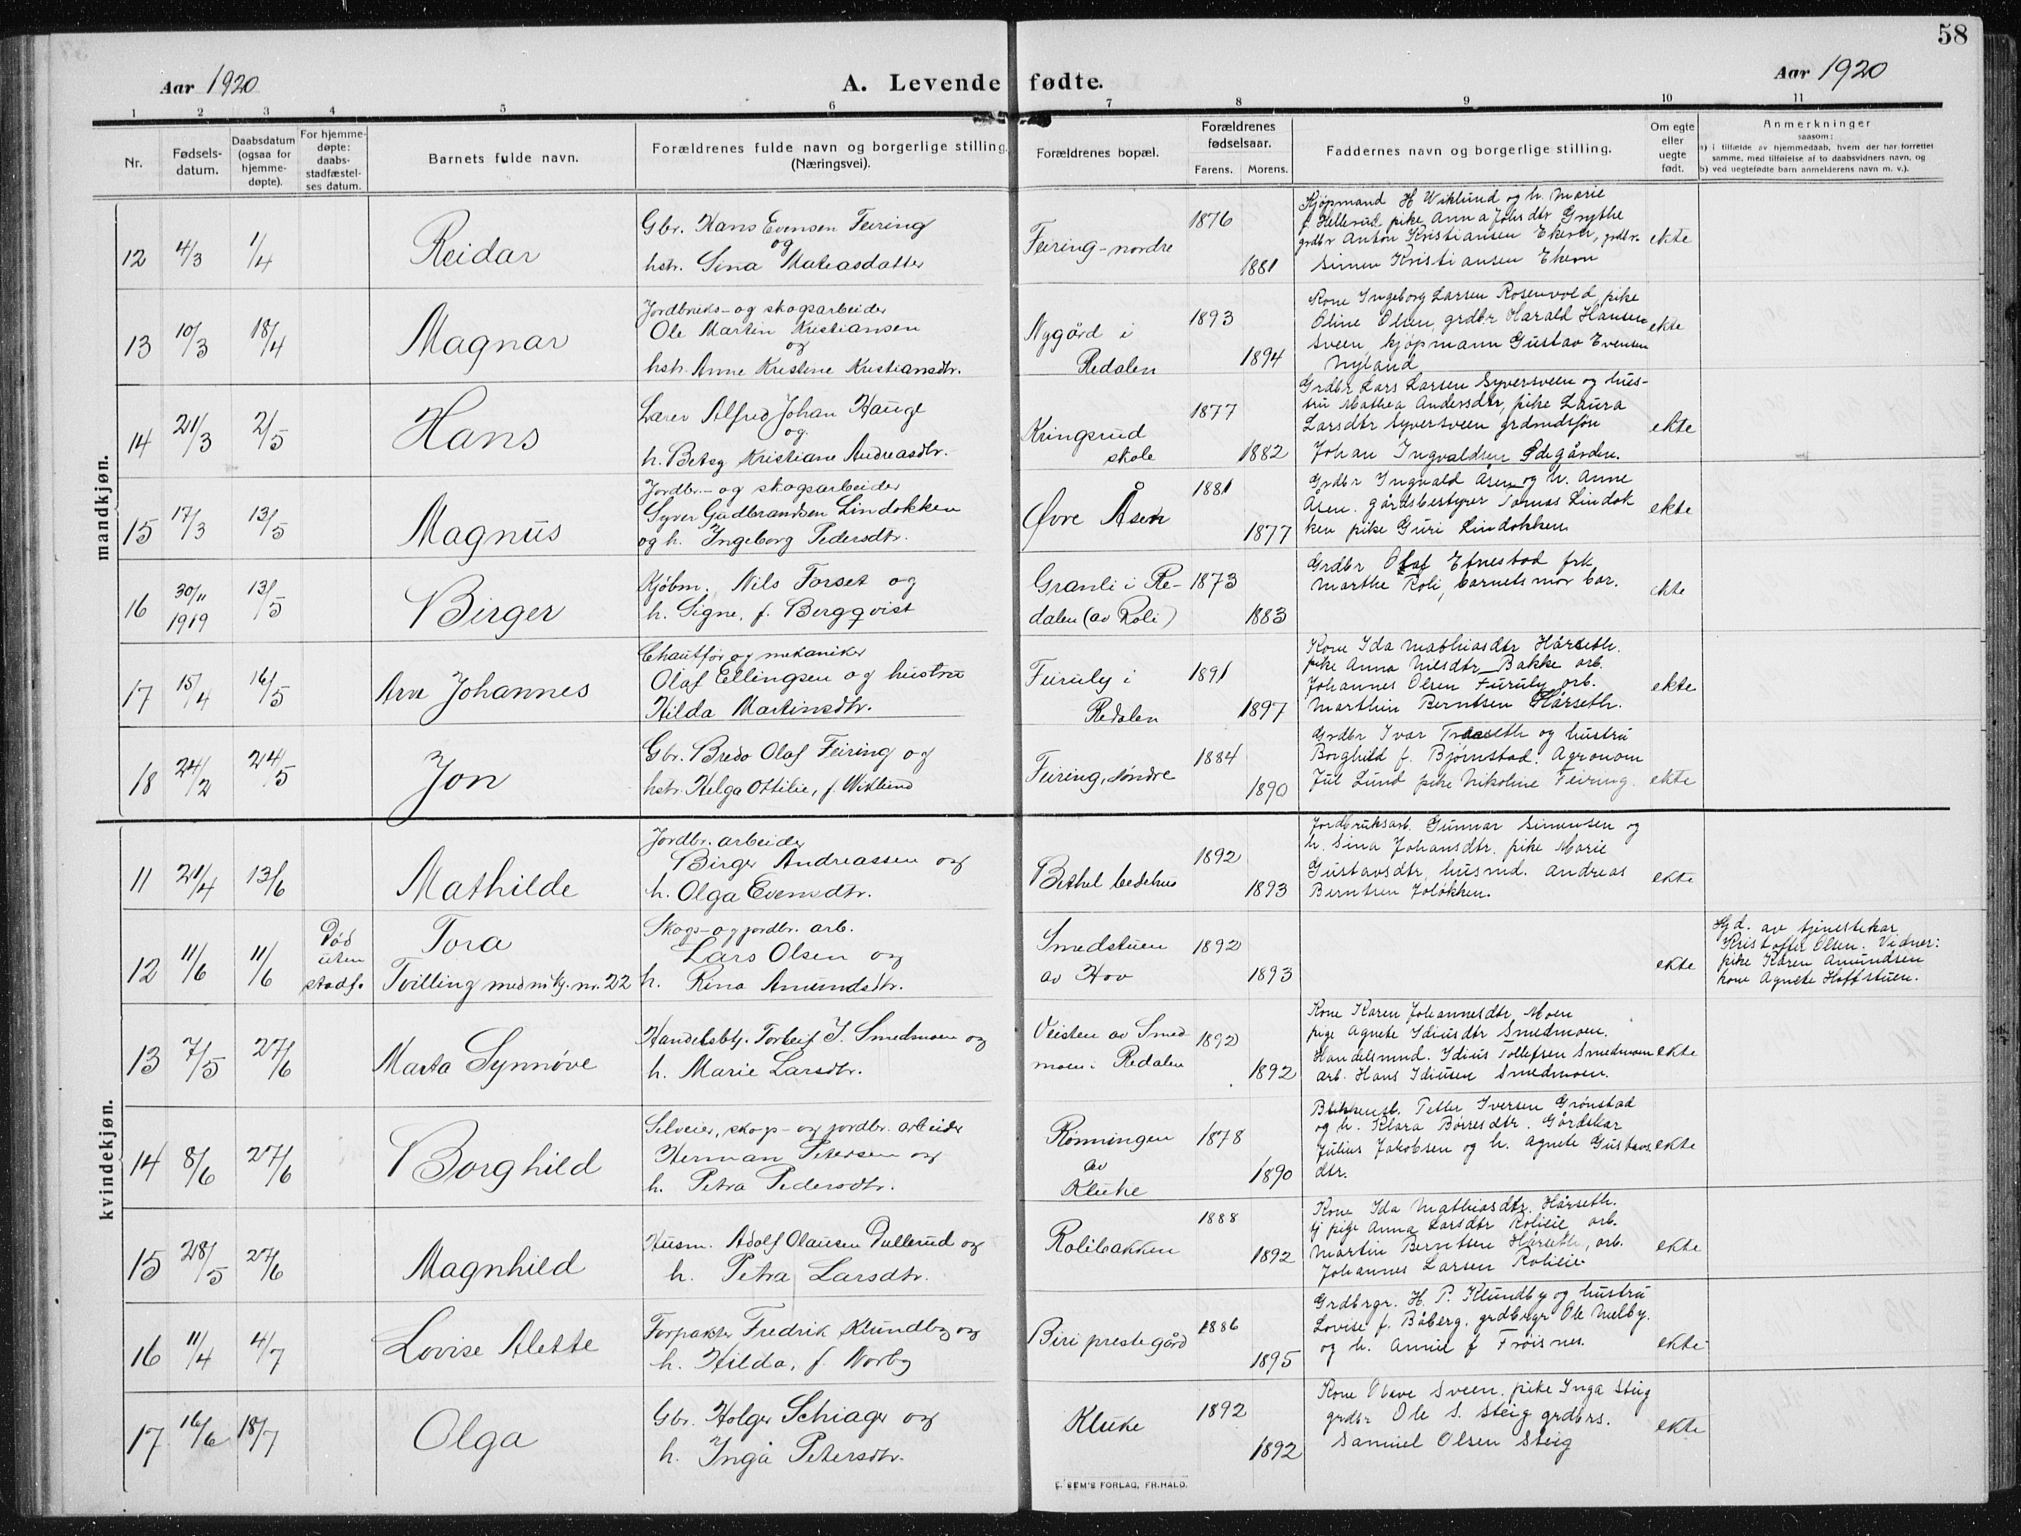 58
Aar 1920
A. Levende fødte.
Aar 1920
1 2 3 4 5 6 7 8 9 10 11
Nr.
Fødselsdatum.
Daabsdatum (ogsaa for hjemmedøpte).
For hjemmedøpte: daabsstadfæstelses datum.
Barnets fulde navn.
Forældrenes fulde navn og borgerlige stilling. (Næringsvei).
Forældrenes bopæl.
Forældrenes fødselsaar.
Farens. Morens.
Faddernes navn og borgerlige stilling.
Om egte eller uegte født.
Anmerkninger
saasom:
a) i tilfælde av hjemmedaab, hvem der har forrettet samme, med tilføielse af to daabsvidners navn, og
b) ved uegtefødte barn anmelderens navn m. v.).
mandkjøn.
12 4/3 1/4 Reidar
Gbr. Hans Evensen Feiring
og
hstr. Sina Mateasdatter
Feiring-nordre
1876
1881
Kjøpmand H Wiklund og h. Marie
f. Hellerud, pike Anna Johsdtr Grythe
grdbr Anton Kristiansen Ekern, grdbr.
Simen Kristiansen Ekern
ekte
13 10/3 18/4 Magnar
Jordbruks- og skogsarbeider
Ole Martin Kristiansen
og
hstr. Anne Kristene Kristiansdtr.
Nygård i
Redalen
1893
1894
Kone Ingeborg Larsen Rosenvold, pike
Oline Olsen, grdbr Harald Hansen
Sveen kjøpmann Gustav Evensen
Nyland
ekte
14 21/3 2/5 Hans
Lærer Alfred Johan Hauge
og
h. Betsy Kristiane Andreasdtr.
Kringsrud
skole
1877
1882
Grdbr Lars Larsen Syversveen og hus-
tru Mathea Andersdtr, pike Laura
Larsdtr Syversveen grdmdsføn
Johan Ingvaldsen Ødegården.
ekte
15 17/3 13/5 Magnus
Jordbr.- og skogsarbeider
Syver Gudbrandsen Lindokken
og h. Ingeborg Pedersdtr.
Øvre Åsen
1881
1877
Grdbr Ingvald Åsen og h. Anne
Åsen. gårdsbestyrer Tomas Lindok
ken pike Guri Lindokken
ekte
16 30/11 1919 13/5 Birger
Kjøbm. Nils Forset og
h. Signe, f. Bergqvist
Granli i Re-
dalen (av Roli)
1873
1883
Grdbr Olaf Etnestad frk
Marthe Roli, barnets mor bar.
ekte
17 15/4 16/5 Arve Johannes
Chauffør og mekaniker
Olaf Ellingsen og hustru
Hilda Martinsdtr.
Furuly i
Redalen
1891
1897
Kone Ida Mathiasdtr Hårseth.
pike Anna Nilsdtr Bakke arb.
Johannes Olsen Furuly arb.
Marthin Berntsen Hårseth.
ekte
18 24/2 24/5 Jon
Gbr. Bredo Olaf Feiring og
hstr. Helga Ottilie, f. Wiklund
Feiring, søndre
1884
1890
Grdbr Ivar Traaseth og hustru
Borghild f. Bjørnstad. Agronom
Jul Lund pike Nikoline Feiring.
ekte
kvindekjøn.
11 21/4 13/6 Mathilde
Jordbr. arbeider
Birger Andreassen og
h. Olga Evensdtr.
Bethel bedehus
1892
1893
Jordbruksarb. Gunnar Simensen og
h. Sina Johansdtr. pike Marie
Gustavsdtr, husmd. Andreas
Berntsen Joløkken.
ekte
12 11/6 11/6
Død
uten
stadf.
Tora
Tvilling med mkj. nr. 22
Skogs- og jordbr. arb.
Lars Olsen og
h. Rina Amundsdtr.
Smedstuen
av Hov
1892
1893
ekte
Hjd. av tjenestekar
Kristoffer Olsen. Vidner:
pike Karen Amundsen
kone Agnete Hoffstuen.
13 7/5 27/6 Marta Synnøve
Handelsbtj. Torleif I. Smedmoen og
h. Marie Larsdtr.
Veisten av Smed
moen i Redalen
1892
1892
Kone Karen Johannesdtr Moen
pige Agnete Idiusdtr Smedmoen.
Handelsmnd. Idius Tollefsen Smedmoen
arb. Hans Idiusen Smedmoen.
ekte
14 8/6 27/6 Borghild
Selveier, skogs- og jordbr. arbeider
Herman Petersen og
h. Petra Pedersdtr.
Rønningen
av
Kluke
1878
1890
Petter Iversen Grønstad
og h. Klara Børresdtr. Gårdskar
Julius Jakobsen og h. Agnete Gustavs
dtr.
ekte
15 28/5 27/6 Magnhild
Husm. Adolf Olausen Dullerud og
h. Petra Larsdtr.
Rolibakken
1888
1892
Kone Ida Mathiasdtr. Hårseth.
tj pige Anna Larsdtr Roliie arb.
Martin Berntsen Hårseth, arb.
Johannes Larsen Roliie
ekte
16 11/4 4/7 Lovise Alette
Forpakter Fredrik Klundby og
h. Hilda, f. Norby
Biri prestegård
1886
1895
Grdbrgr. H. P. Klundby og hustru
Lovise f. Båberg. grdbrgr Ole Melby.
og h. Annie f Frøisnes.
ekte
17 16/6 18/7 Olga
Gbr. Holger Schiager og
h. Inga Petersdtr.
Kluke
1892
1892
Kone Olave Sveen. pike Inga Steig
grdbr Ole S. Steig grdbrs.
Samuel Olsen Steig
ekte
E. SEM'S FORLAG, FR.HALD.